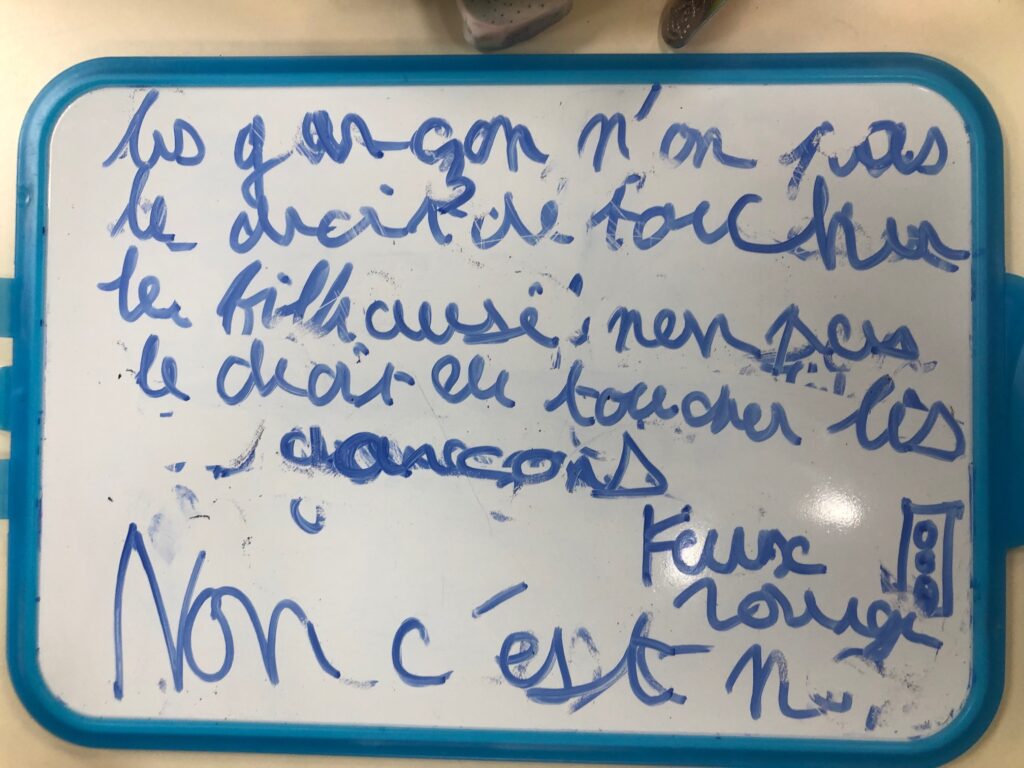 les garçon n'on pas
le droit de toucher
le fill ausi non pas
le droit de toucher lès
garcons
Feux
rouge
Non c'est n